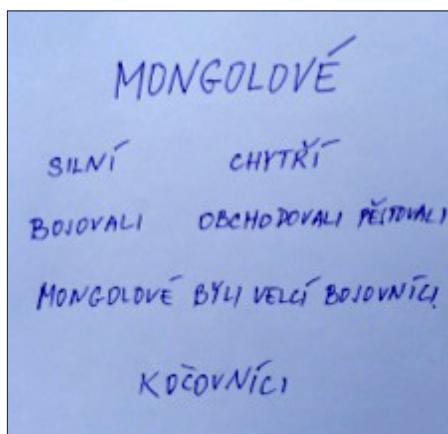 MONGOLOVÉ
SILNÍ CHYTŘÍ
BOJOVALI OBCHODOVALI PĚSTOVALI
MONGOLOVÉ BYLI VELCÍ BOJOVNÍCI.
KOČOVNÍCI